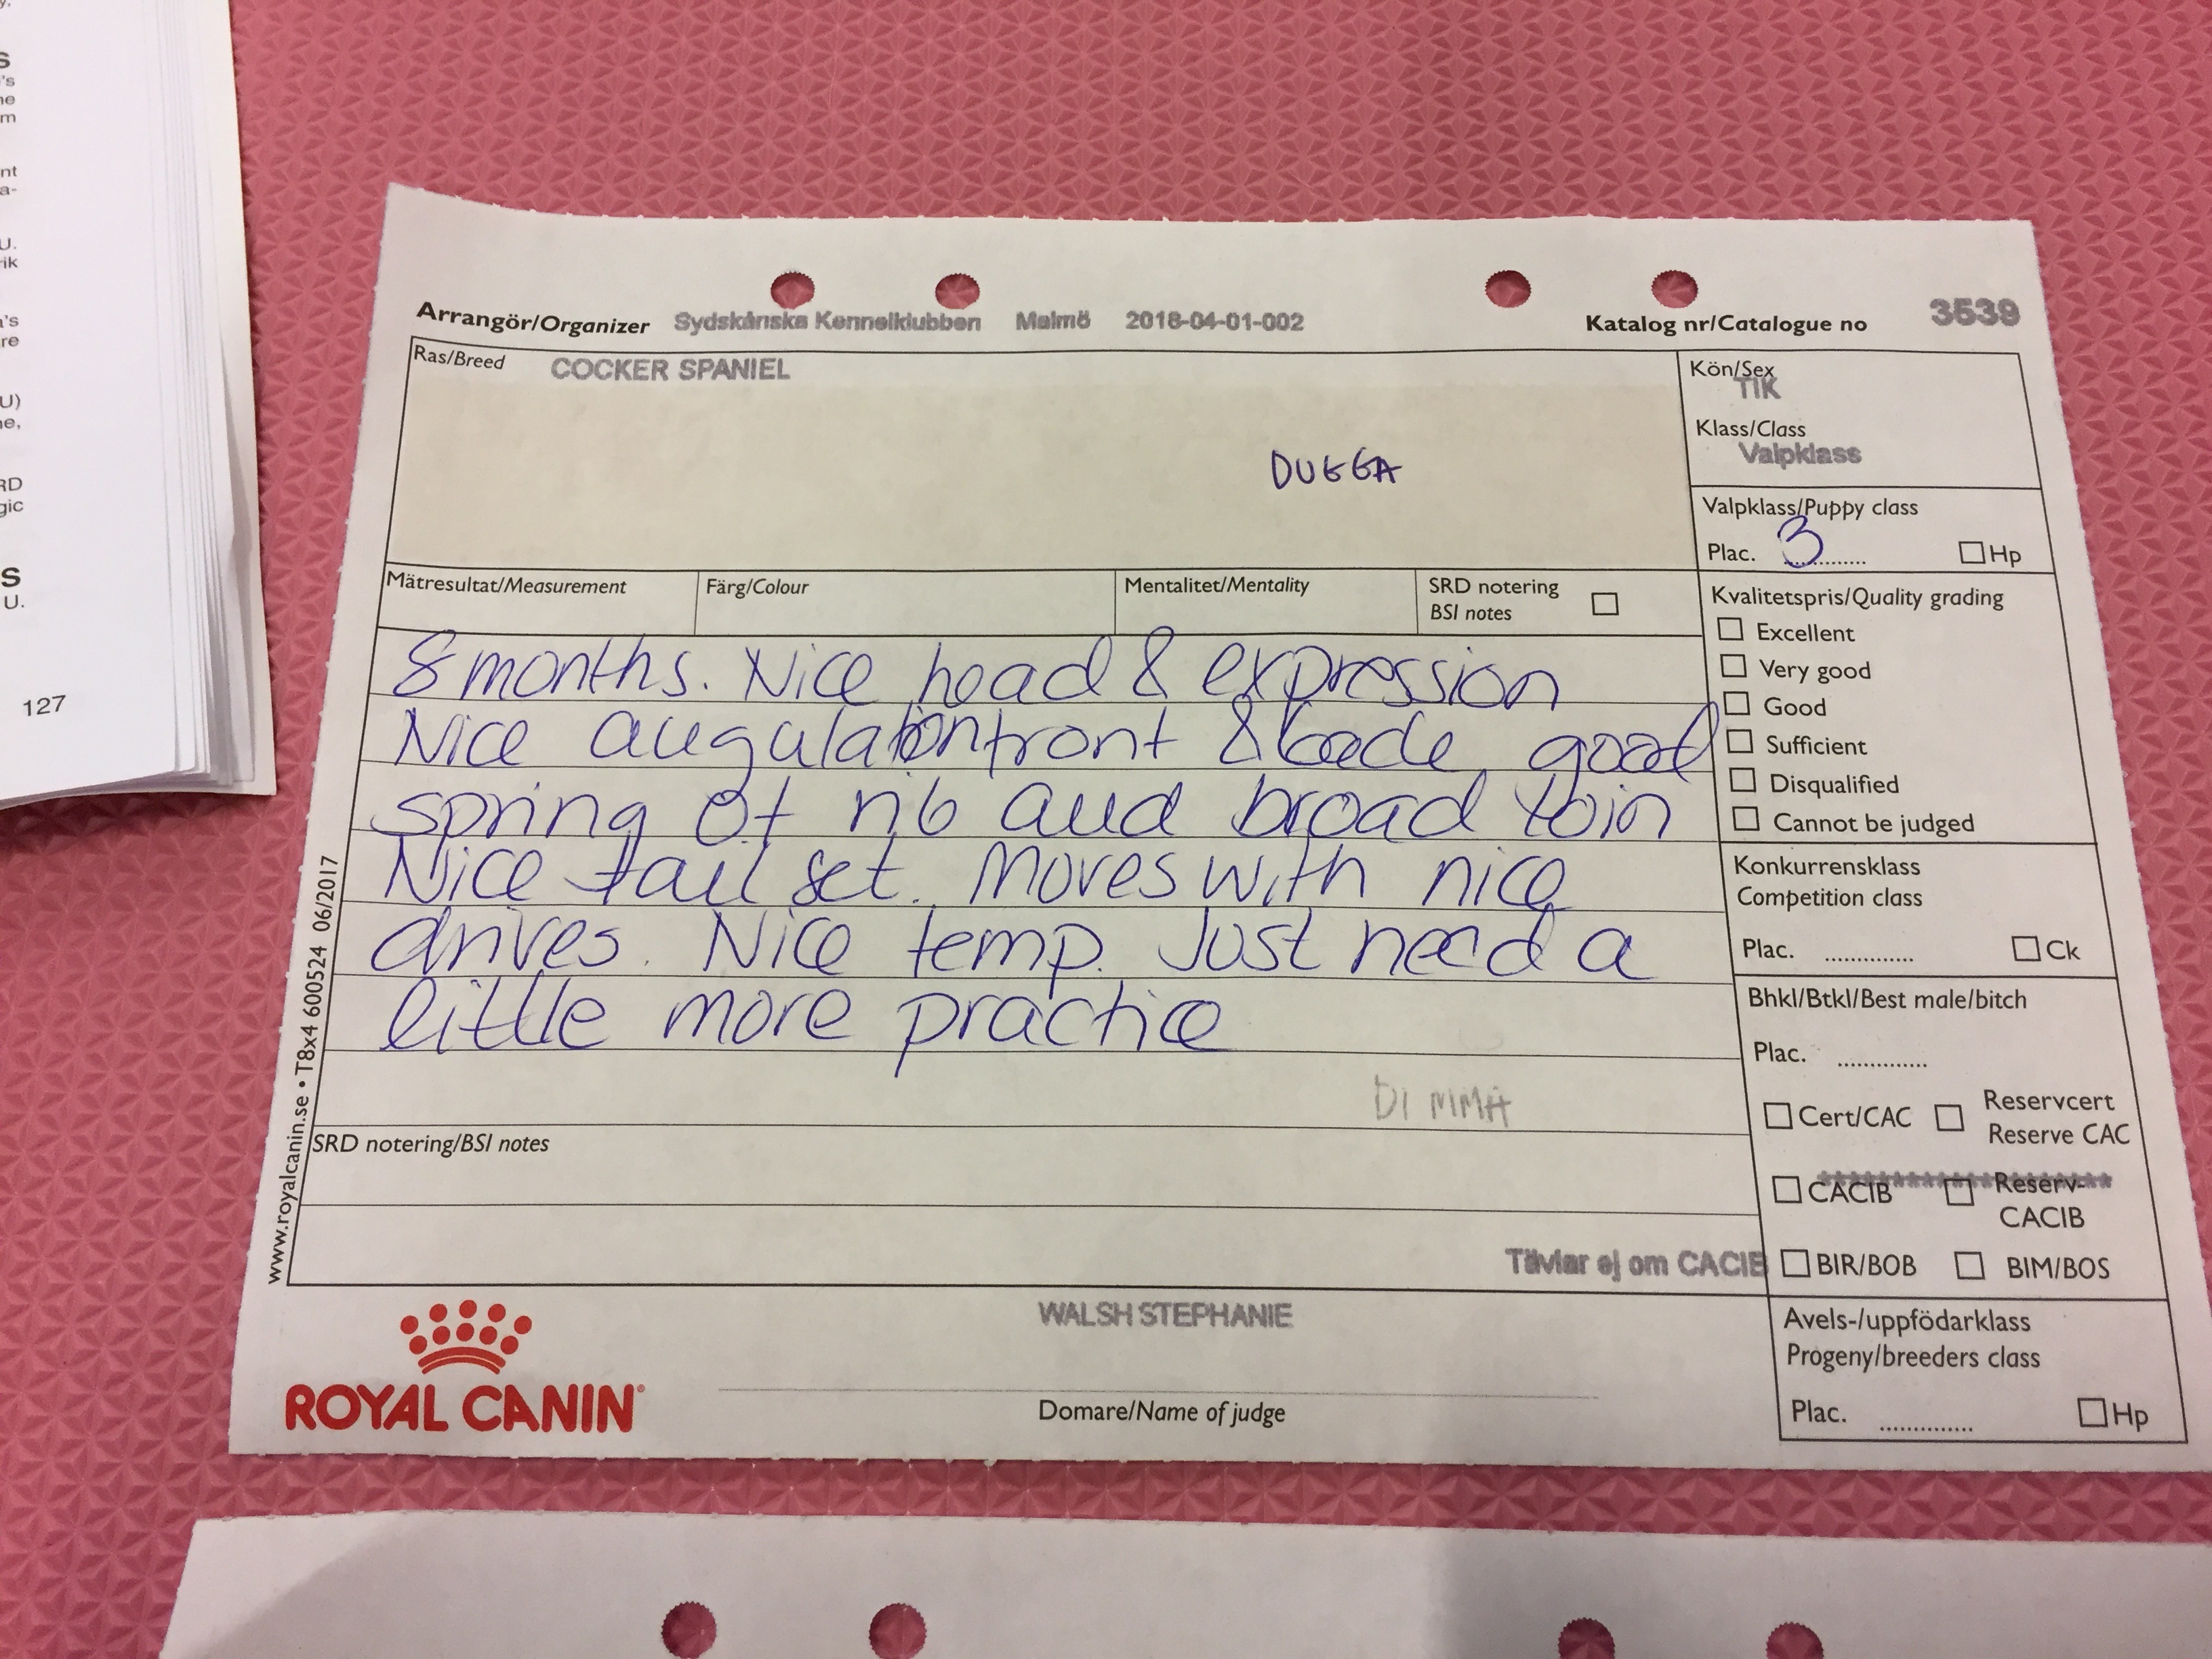 s
's
ne
m
nt
a-
U.
rik
's
re
U)
ne,
RD
gic
S
U.
127
Arrangör/Organizer Sydskånska Kennelklubben Malmö 2018-04-01-002 Katalog nr/Catalogue no 3539
Ras/Breed COCKER SPANIEL
DUGGA
Kön/Sex
TIK
Klass/Class
Valpklass
Valpklass/Puppy class
Plac. 3 Hp
Mätresultat/Measurement Färg/Colour Mentalitet/Mentality SRD notering
BSI notes
8 months. Nice head & expression
Nice angulation front & back, good
spring of rib and broad loin
Nice tail set. Moves with nice
drives. Nice temp. Just need a
little more practice
DIMMA
SRD notering/BSI notes
Tävlar ej om CACIB
Kvalitetspris/Quality grading
Excellent
Very good
Good
Sufficient
Disqualified
Cannot be judged
Konkurrensklass
Competition class
Plac. .............. Ck
Bhkl/Btkl/Best male/bitch
Plac. ..............
Cert/CAC Reservcert
Reserve CAC
*************************
CACIB Reserv-
CACIB
BIR/BOB BIM/BOS
Avels-/uppfödarklass
Progeny/breeders class
Plac. .............. Hp
WALSH STEPHANIE
Domare/Name of judge
ROYAL CANIN®
www.royalcanin.se • T8x4 600524 06/2017